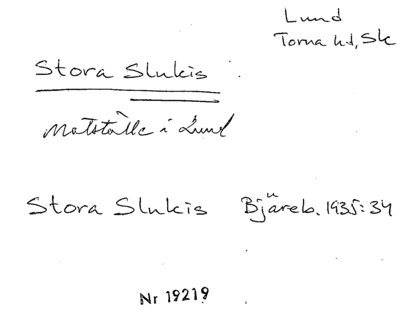 Lund
Torna hd, Sk
Stora Slukis
Matställe i Lund
Stora Slukis Bjäreb. 1935:34
Nr 19219